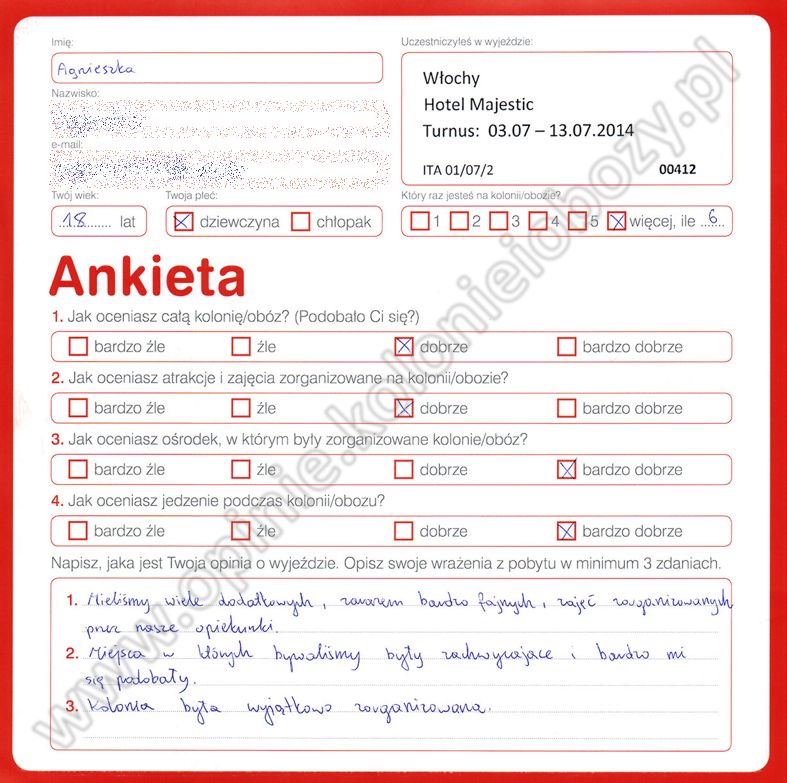 Imię:
Agnieszka
Nazwisko:
e-mail:
Twój wiek:
18 lat
Twoja płeć:
dziewczyna chłopak
Uczestniczyłeś w wyjeździe:
Włochy
Hotel Majestic
Turnus: 03.07 – 13.07.2014
ITA 01/07/2 00412
Który raz jesteś na kolonii/obozie?
1 2 3 4 5 więcej, ile 6
Ankieta
1. Jak oceniasz całą kolonię/obóz? (Podobało Ci się?)
bardzo źle źle dobrze bardzo dobrze
2. Jak oceniasz atrakcje i zajęcia zorganizowane na kolonii/obozie?
bardzo źle źle dobrze bardzo dobrze
3. Jak oceniasz ośrodek, w którym były zorganizowane kolonie/obóz?
bardzo źle źle dobrze bardzo dobrze
4. Jak oceniasz jedzenie podczas kolonii/obozu?
bardzo źle źle dobrze bardzo dobrze
Napisz, jaka jest Twoja opinia o wyjeździe. Opisz swoje wrażenia z pobytu w minimum 3 zdaniach.
1. Mieliśmy wiele dodatkowych, zarazem bardzo fajnych, zajęć zorganizowanych
przez nasze opiekunki.
2. Miejsca w których bywaliśmy były zachwycające i bardzo mi
się podobały.
3. Kolonia była wyjątkowo zorganizowana.
www.opinie.kolonieiobozy.pl